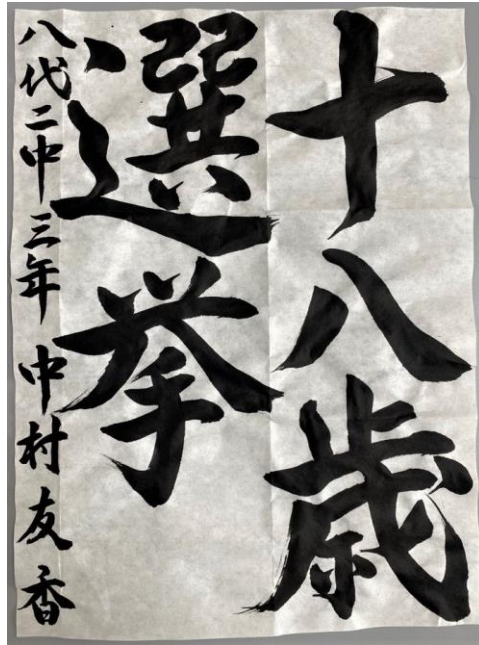 十八歳
選挙
八代二中三年 中村友香